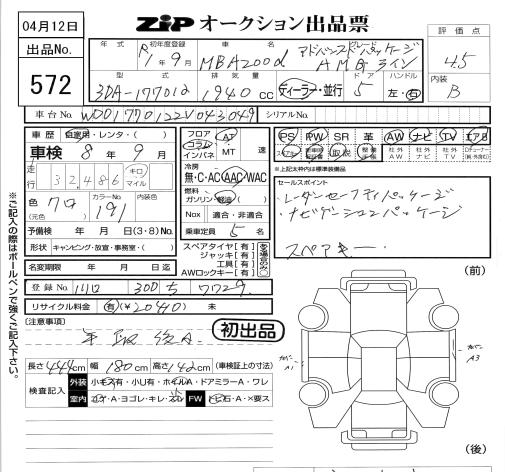 04月12日
ZiP オークション出品票
出品No.
572
年式 初年度登録 車名 グレード
R1年9月 MBA200d アドバンスドパッケージ AMGライン
型式 排気量 ドア ハンドル
3DA-177012 1940cc ディーラー・並行 5 左・右
評価点
4.5
内装
B
車台No. W1V043049
シリアルNo.
車歴 自家用・レンタ・( )
車検 8年9月
走行 32,486 キロ マイル
色 クロ (元色) カラーNo. 191 内装色
予備検 年 月 日(3・8)No.
形状 キャンピング・放宣・事務室・( )
名変期限 年 月 日迄
登録No. 川口 300 ち 7729
リサイクル料金 有(¥20410) 未
フロア コラム インパネ AT MT 速
冷房 無・C・AC・AAC・WAC
燃料 ガソリン・軽油( )
Nox 適合・非適合
乗車定員 5名
スペアタイヤ[有]
ジャッキ[有]
工具[有]
AWロックキー[有]
ある場合のみ
PS PW SR 革 AW ナビ TV エアB
取説
社外AW 社外ナビ 社外TV
※上記太枠内は標準装備品
セールスポイント
レーダーセーフティパッケージ
ナビゲーションパッケージ
スペアキー
[注意事項]
初出品
長さ444cm 幅180cm 高さ142cm (車検証上の寸法)
検査記入 外装 小キズ有・小U有・ホイルA・ドアミラーA・ワレ
室内 コゲ・A・ヨゴレ・キレ・スレ FW トビ石・A・×要ス
(前)
A1
A3
(後)
※ご記入の際はボールペンで強くご記入下さい。